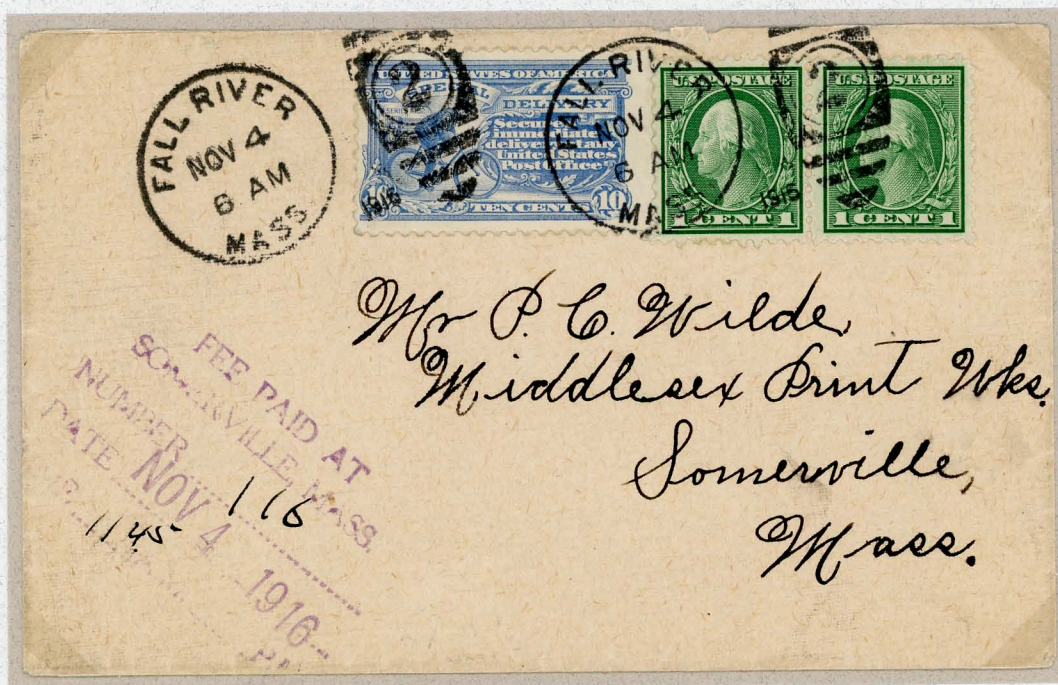 FALL RIVER
NOV 4
6 AM
MASS
UNITED STATES OF AMERICA
DELIVERY
Secures
immediate
delivery at any
United States
Post Office
10
TEN CENTS
1916
FALL RIVER
NOV 4
6 AM
MASS
U.S. POSTAGE
1 CENT 1
1916
U.S. POSTAGE
1 CENT 1
Mr P. C. Wilde,
Middlesex Print Wks.
Somerville,
Mass.
FEE PAID AT
SOMERVILLE, MASS.
NUMBER 116
DATE NOV 4 1916
1145